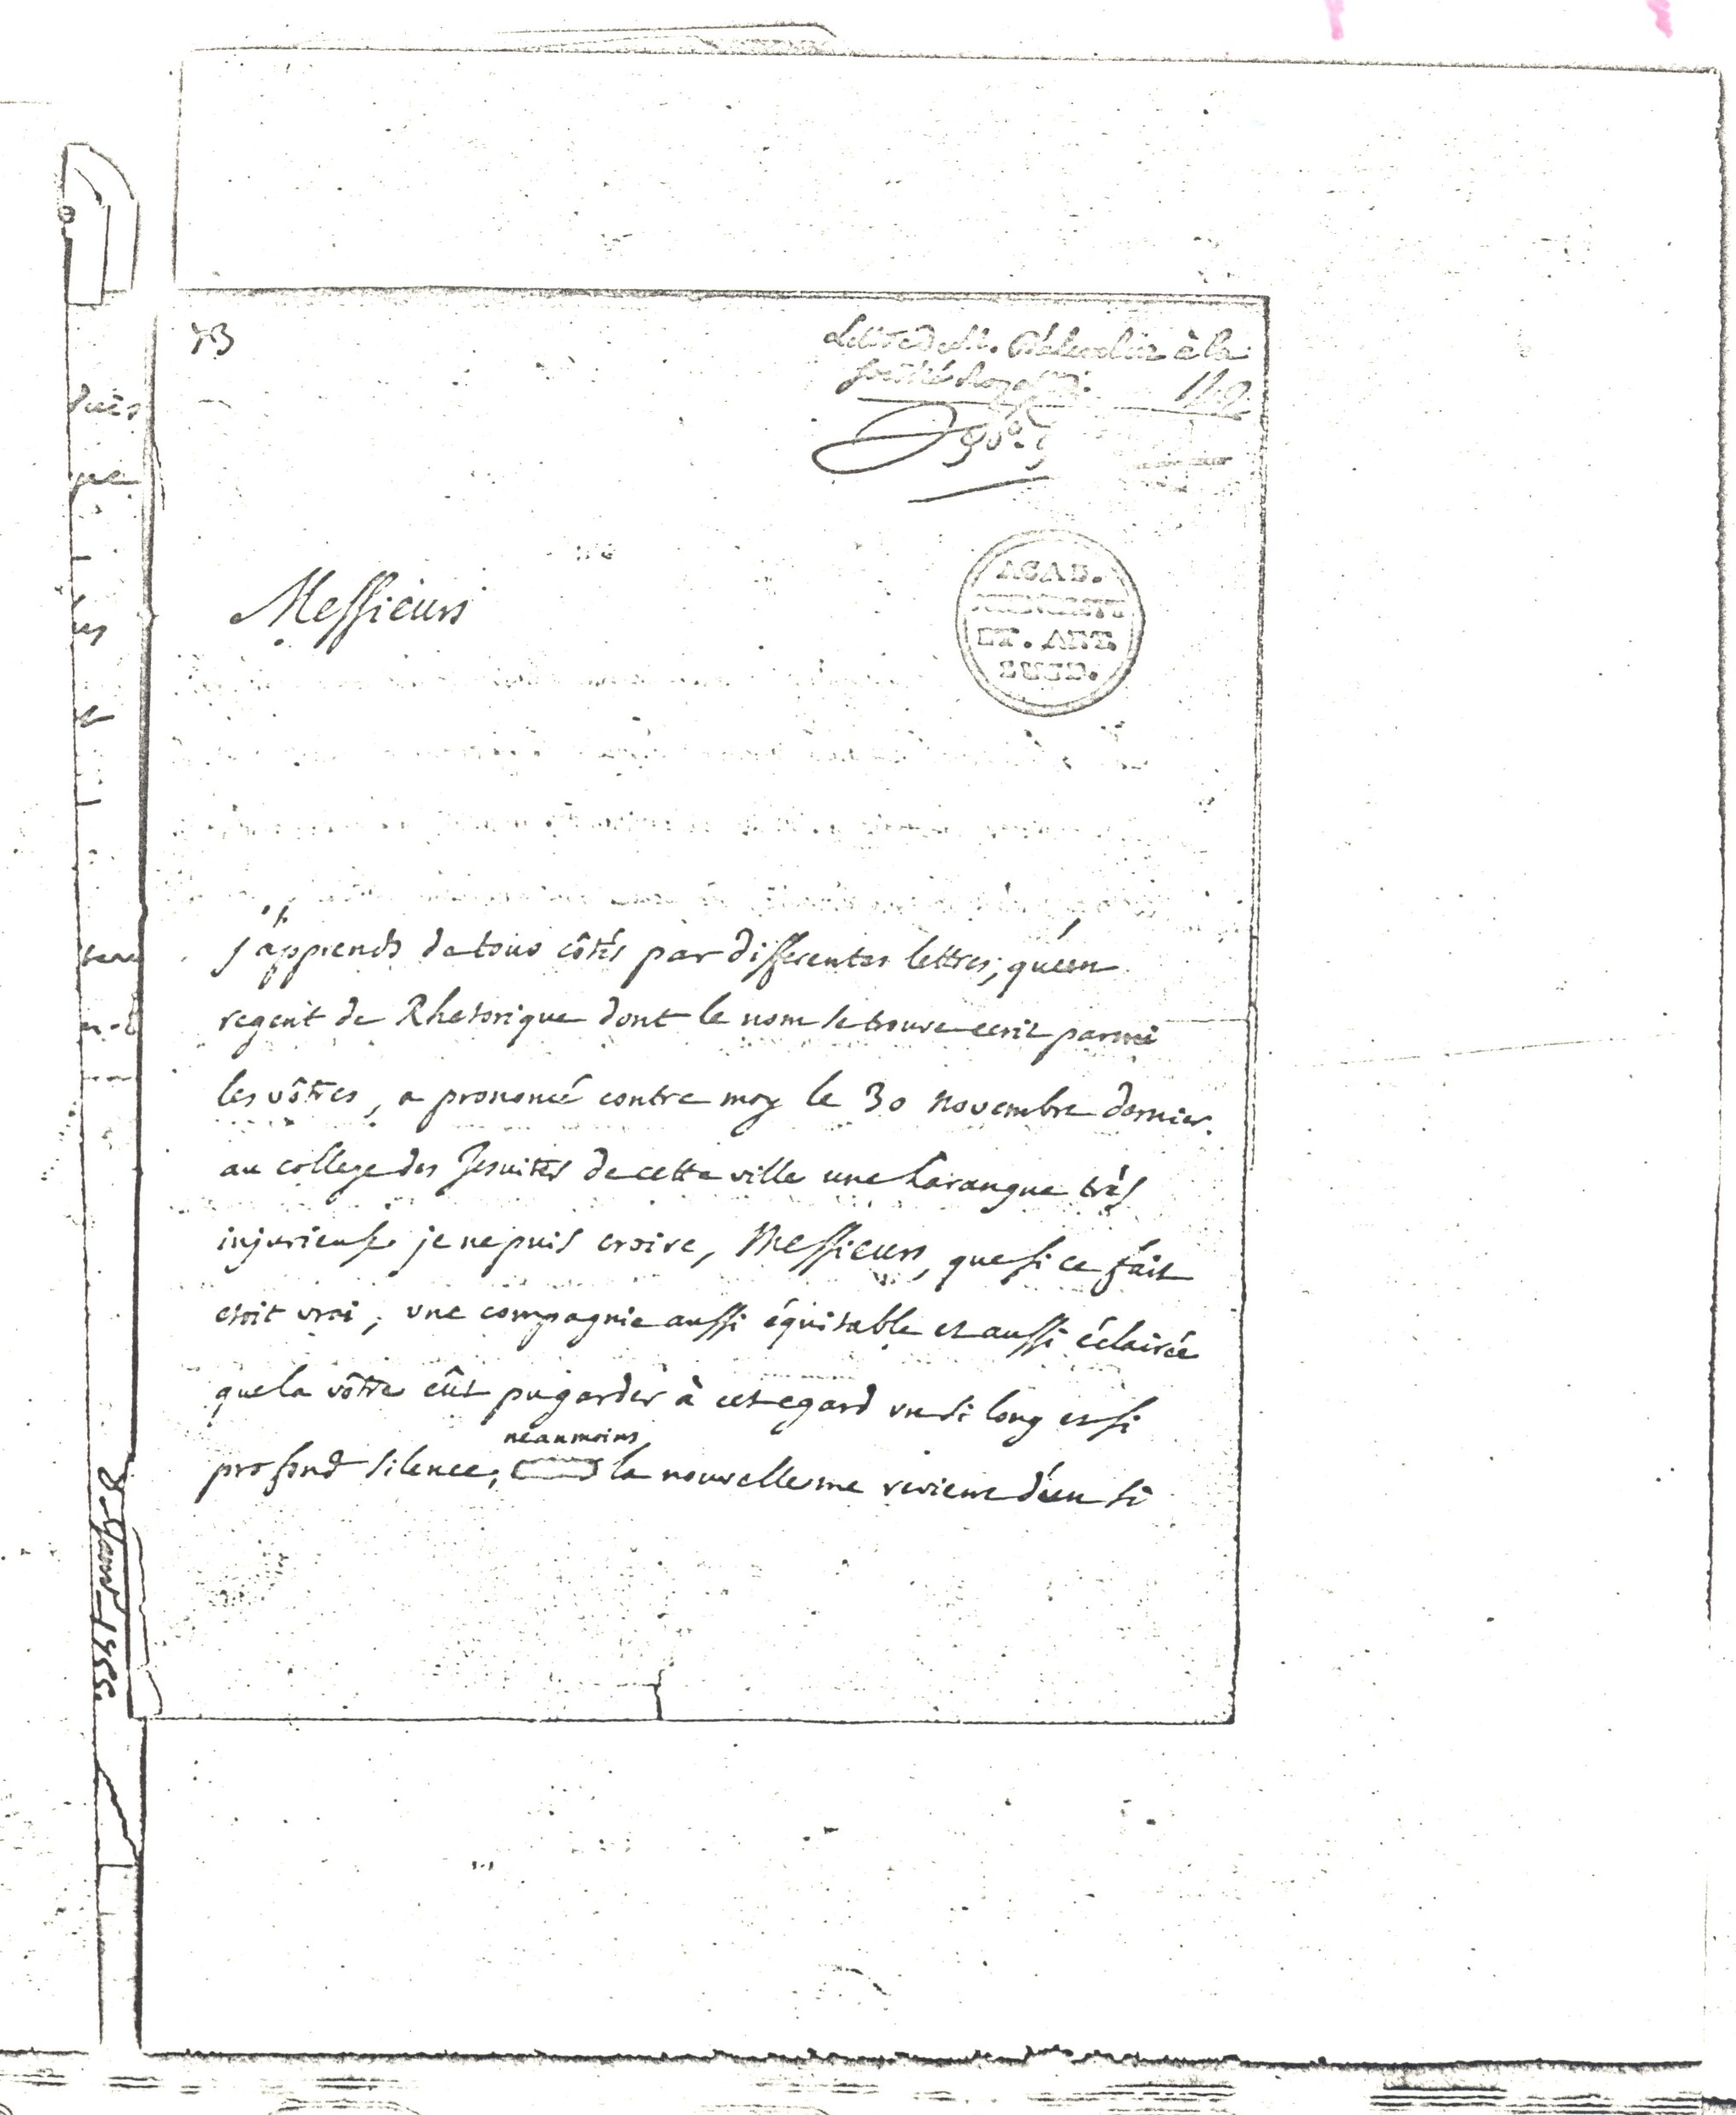 73
à la
Messieurs
ACAD.
ET. ART.
LUGD.
j'apprends de tous côtés par differentes lettres, qu'un
regent de Rhetorique dont le nom se trouve ecrit parmi
les vôtres, a prononcé contre moy le 30 novembre dernier
au college des Jesuites de cette ville une harangue très
injurieuse. je ne puis croire, Messieurs, que si ce fait
etoit vrai, une compagnie aussi équitable et aussi éclairée
que la vôtre eût pu garder à cet egard un si long et si
neanmoins
profond silence, la nouvelle me revient d'un si